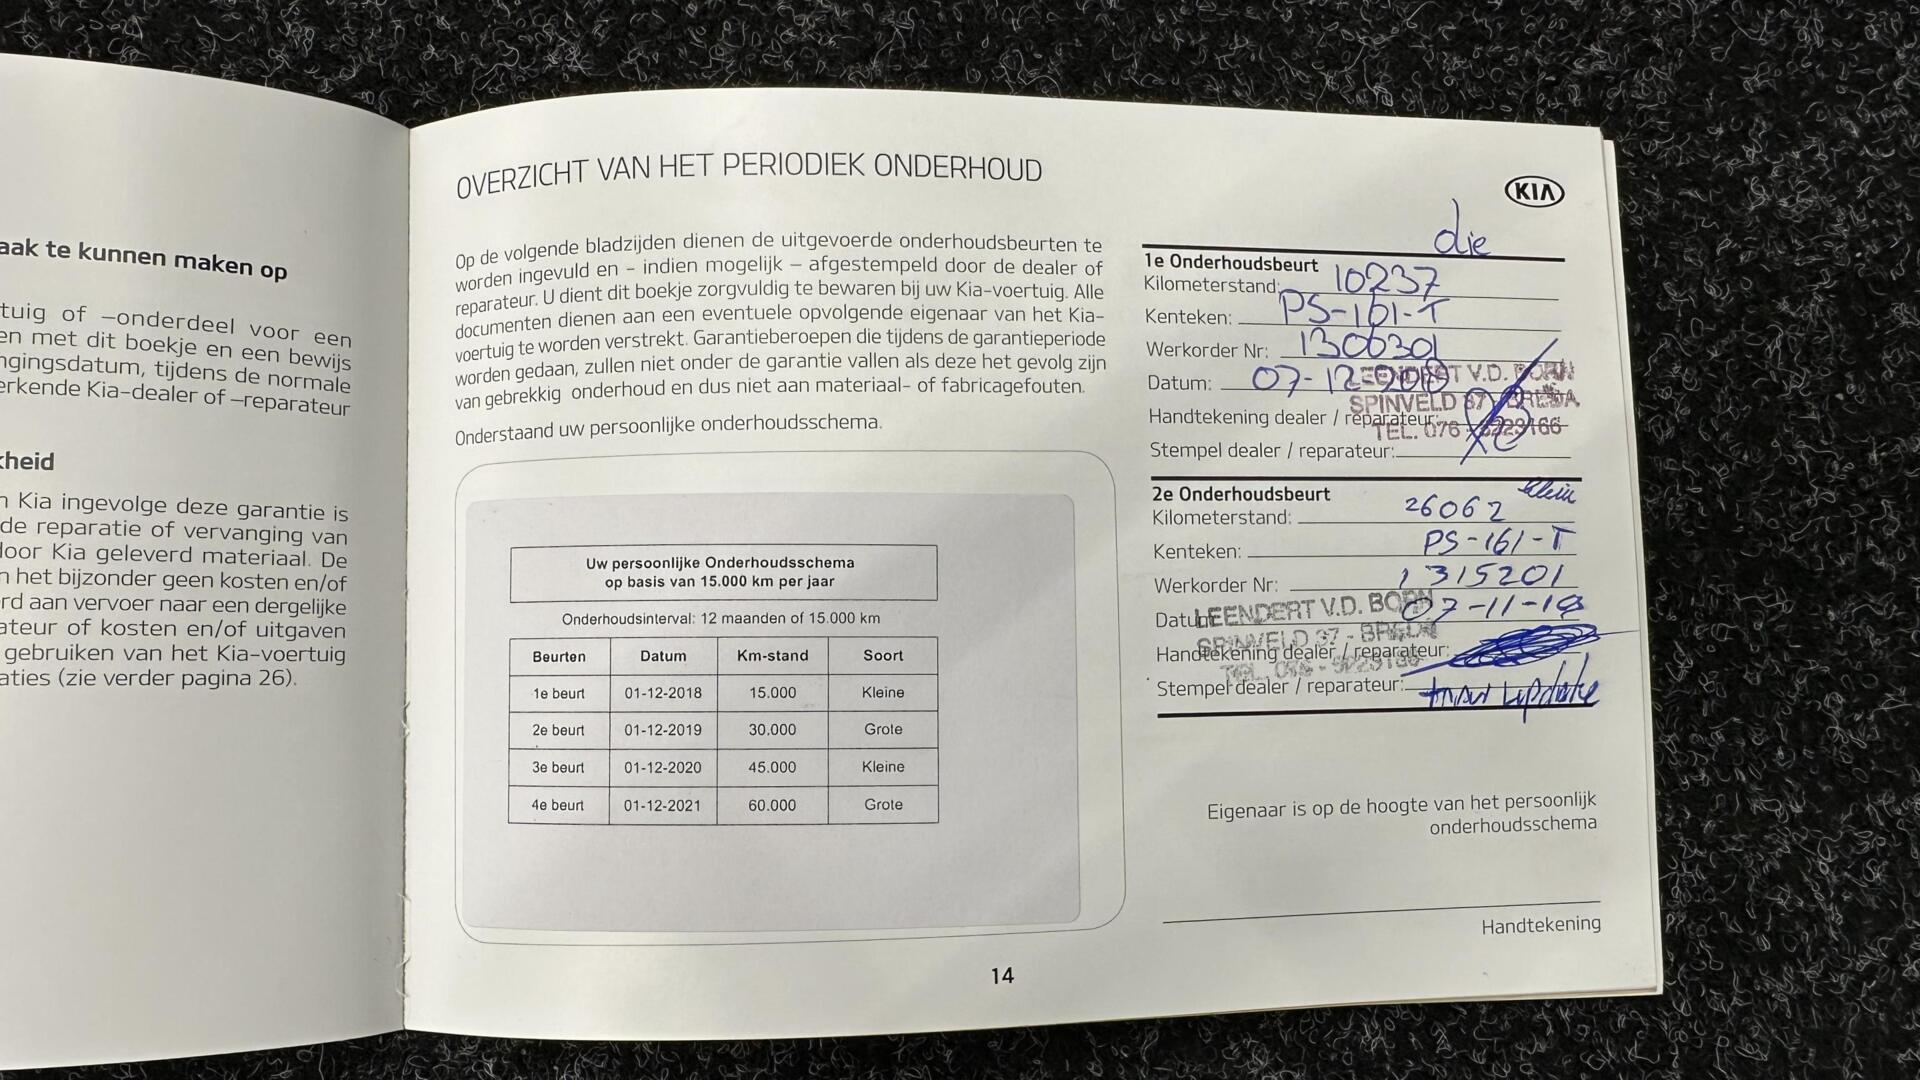 aak te kunnen maken op
tuig of –onderdeel voor een
en met dit boekje en een bewijs
ngingsdatum, tijdens de normale
erkende Kia-dealer of –reparateur
kheid
n Kia ingevolge deze garantie is
de reparatie of vervanging van
door Kia geleverd materiaal. De
n het bijzonder geen kosten en/of
rd aan vervoer naar een dergelijke
ateur of kosten en/of uitgaven
gebruiken van het Kia-voertuig
aties (zie verder pagina 26).
OVERZICHT VAN HET PERIODIEK ONDERHOUD
Op de volgende bladzijden dienen de uitgevoerde onderhoudsbeurten te
worden ingevuld en – indien mogelijk – afgestempeld door de dealer of
reparateur. U dient dit boekje zorgvuldig te bewaren bij uw Kia-voertuig. Alle
documenten dienen aan een eventuele opvolgende eigenaar van het Kia-
voertuig te worden verstrekt. Garantieberoepen die tijdens de garantieperiode
worden gedaan, zullen niet onder de garantie vallen als deze het gevolg zijn
van gebrekkig onderhoud en dus niet aan materiaal- of fabricagefouten.
Onderstaand uw persoonlijke onderhoudsschema.
Uw persoonlijke Onderhoudsschema
op basis van 15.000 km per jaar
Onderhoudsinterval: 12 maanden of 15.000 km
Beurten Datum Km-stand Soort
1e beurt 01-12-2018 15.000 Kleine
2e beurt 01-12-2019 30.000 Grote
3e beurt 01-12-2020 45.000 Kleine
4e beurt 01-12-2021 60.000 Grote
14
KIA
die
1e Onderhoudsbeurt
Kilometerstand: 10237
Kenteken: PS-161-T
Werkorder Nr: 1306301
Datum: 07-12-2018
LEENDERT V.D. BORN
SPINVELD 37 - BREDA
TEL. 076 - 5223166
Handtekening dealer / reparateur:
Stempel dealer / reparateur:
2e Onderhoudsbeurt klein
Kilometerstand: 26062
Kenteken: PS-161-T
Werkorder Nr: 1315201
Datum: 07-11-19
LEENDERT V.D. BORN
SPINVELD 37 - BREDA
TEL. 076 - 5223166
Handtekening dealer / reparateur:
Stempel dealer / reparateur: update
Eigenaar is op de hoogte van het persoonlijk
onderhoudsschema
Handtekening